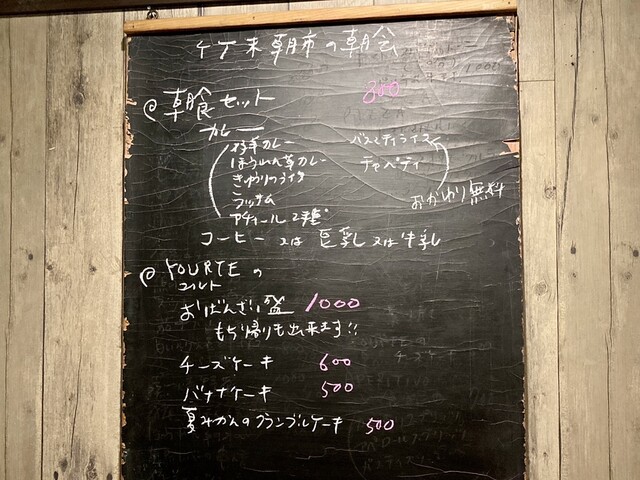 朝市の朝食
@朝食セット 800
カレー
カレー バスマティライス
ほうれん草カレー チャパティ
きゅうりのライタ
ラッサム おかわり無料
アチャール2種
コーヒー 又は 豆乳 又は 牛乳
@YOURTEの
おばんざい盛 1000
もち帰りも出来ます!!
チーズケーキ 600
バナナケーキ 500
夏みかんのクランブルケーキ 500